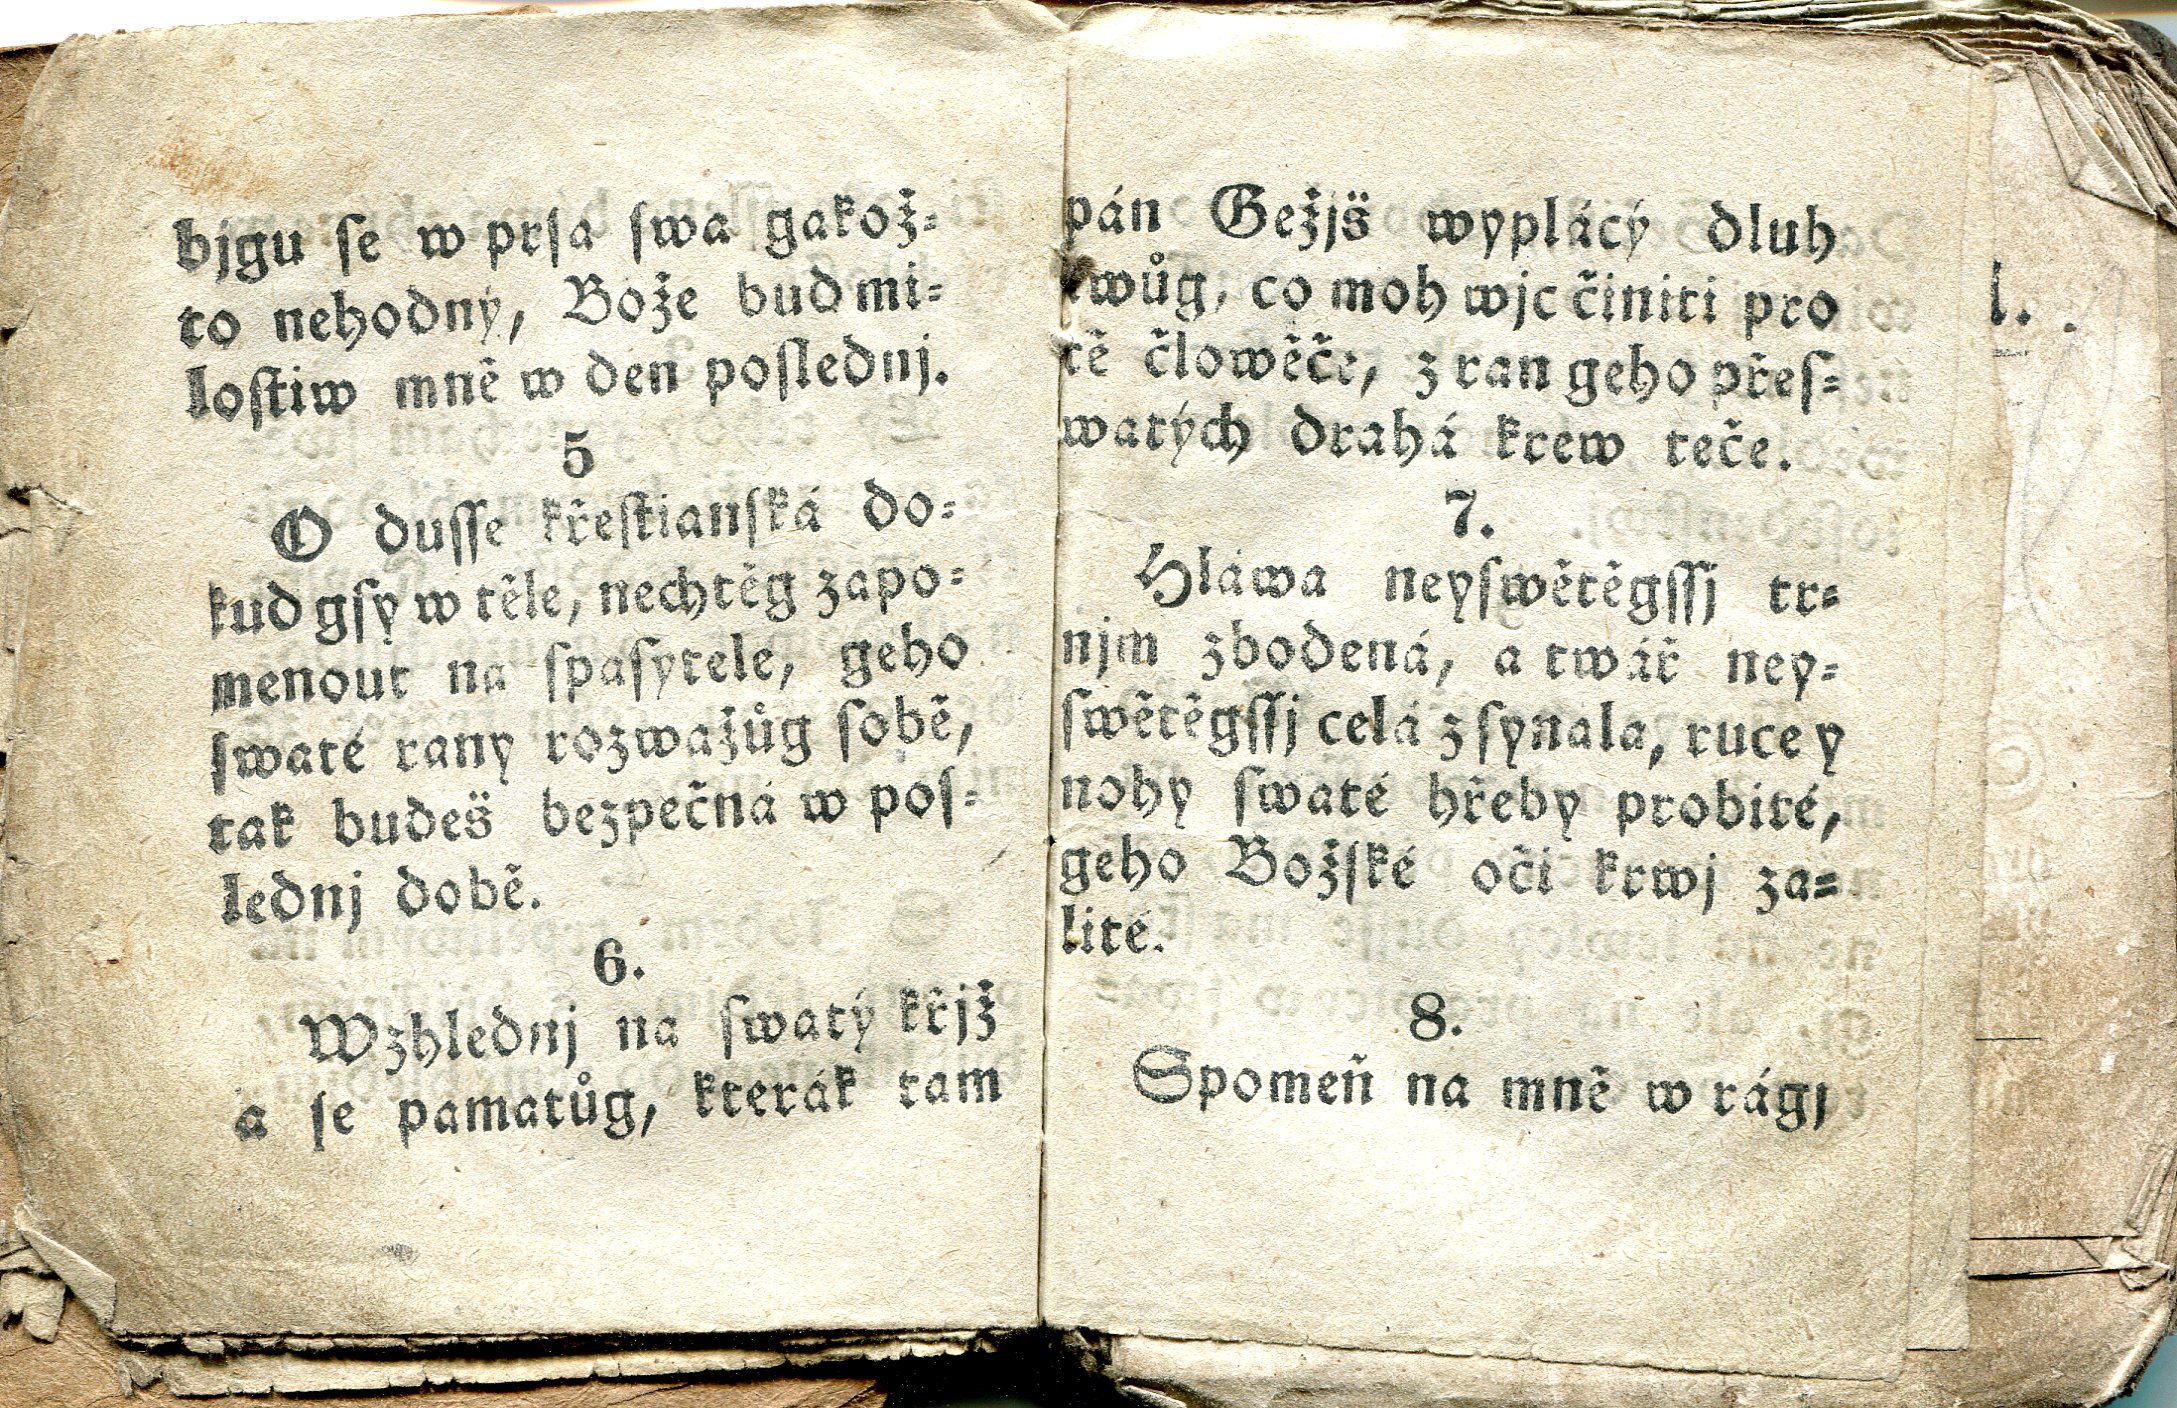 bjgu se w prsa swa gakož-
to nehodný, Bože bud mi-
lostiw mně w den poslednj.
5
O dusse křestianská do-
kud gsy w těle, nechtěg zapo-
menout na spasytele, geho
swaté rany rozwažůg sobě,
tak budeš bezpečná w pos-
lednj době.
6.
Wzhlednj na swatý křjž
a se pamatůg, kterák tam
pán Gežjš wyplácý dluh
twůg, co moh wjc činiti pro
tě člowěče, z ran geho přes-
watých drahá krew teče.
7.
Hláwa neyswětěgssj tr-
njm zbodená, a twář ney-
swětěgssj celá zsynala, ruce y
nohy swaté hřeby probité,
geho Božské oči krwj za-
lité.
8.
Spomeň na mně w rágj
l.